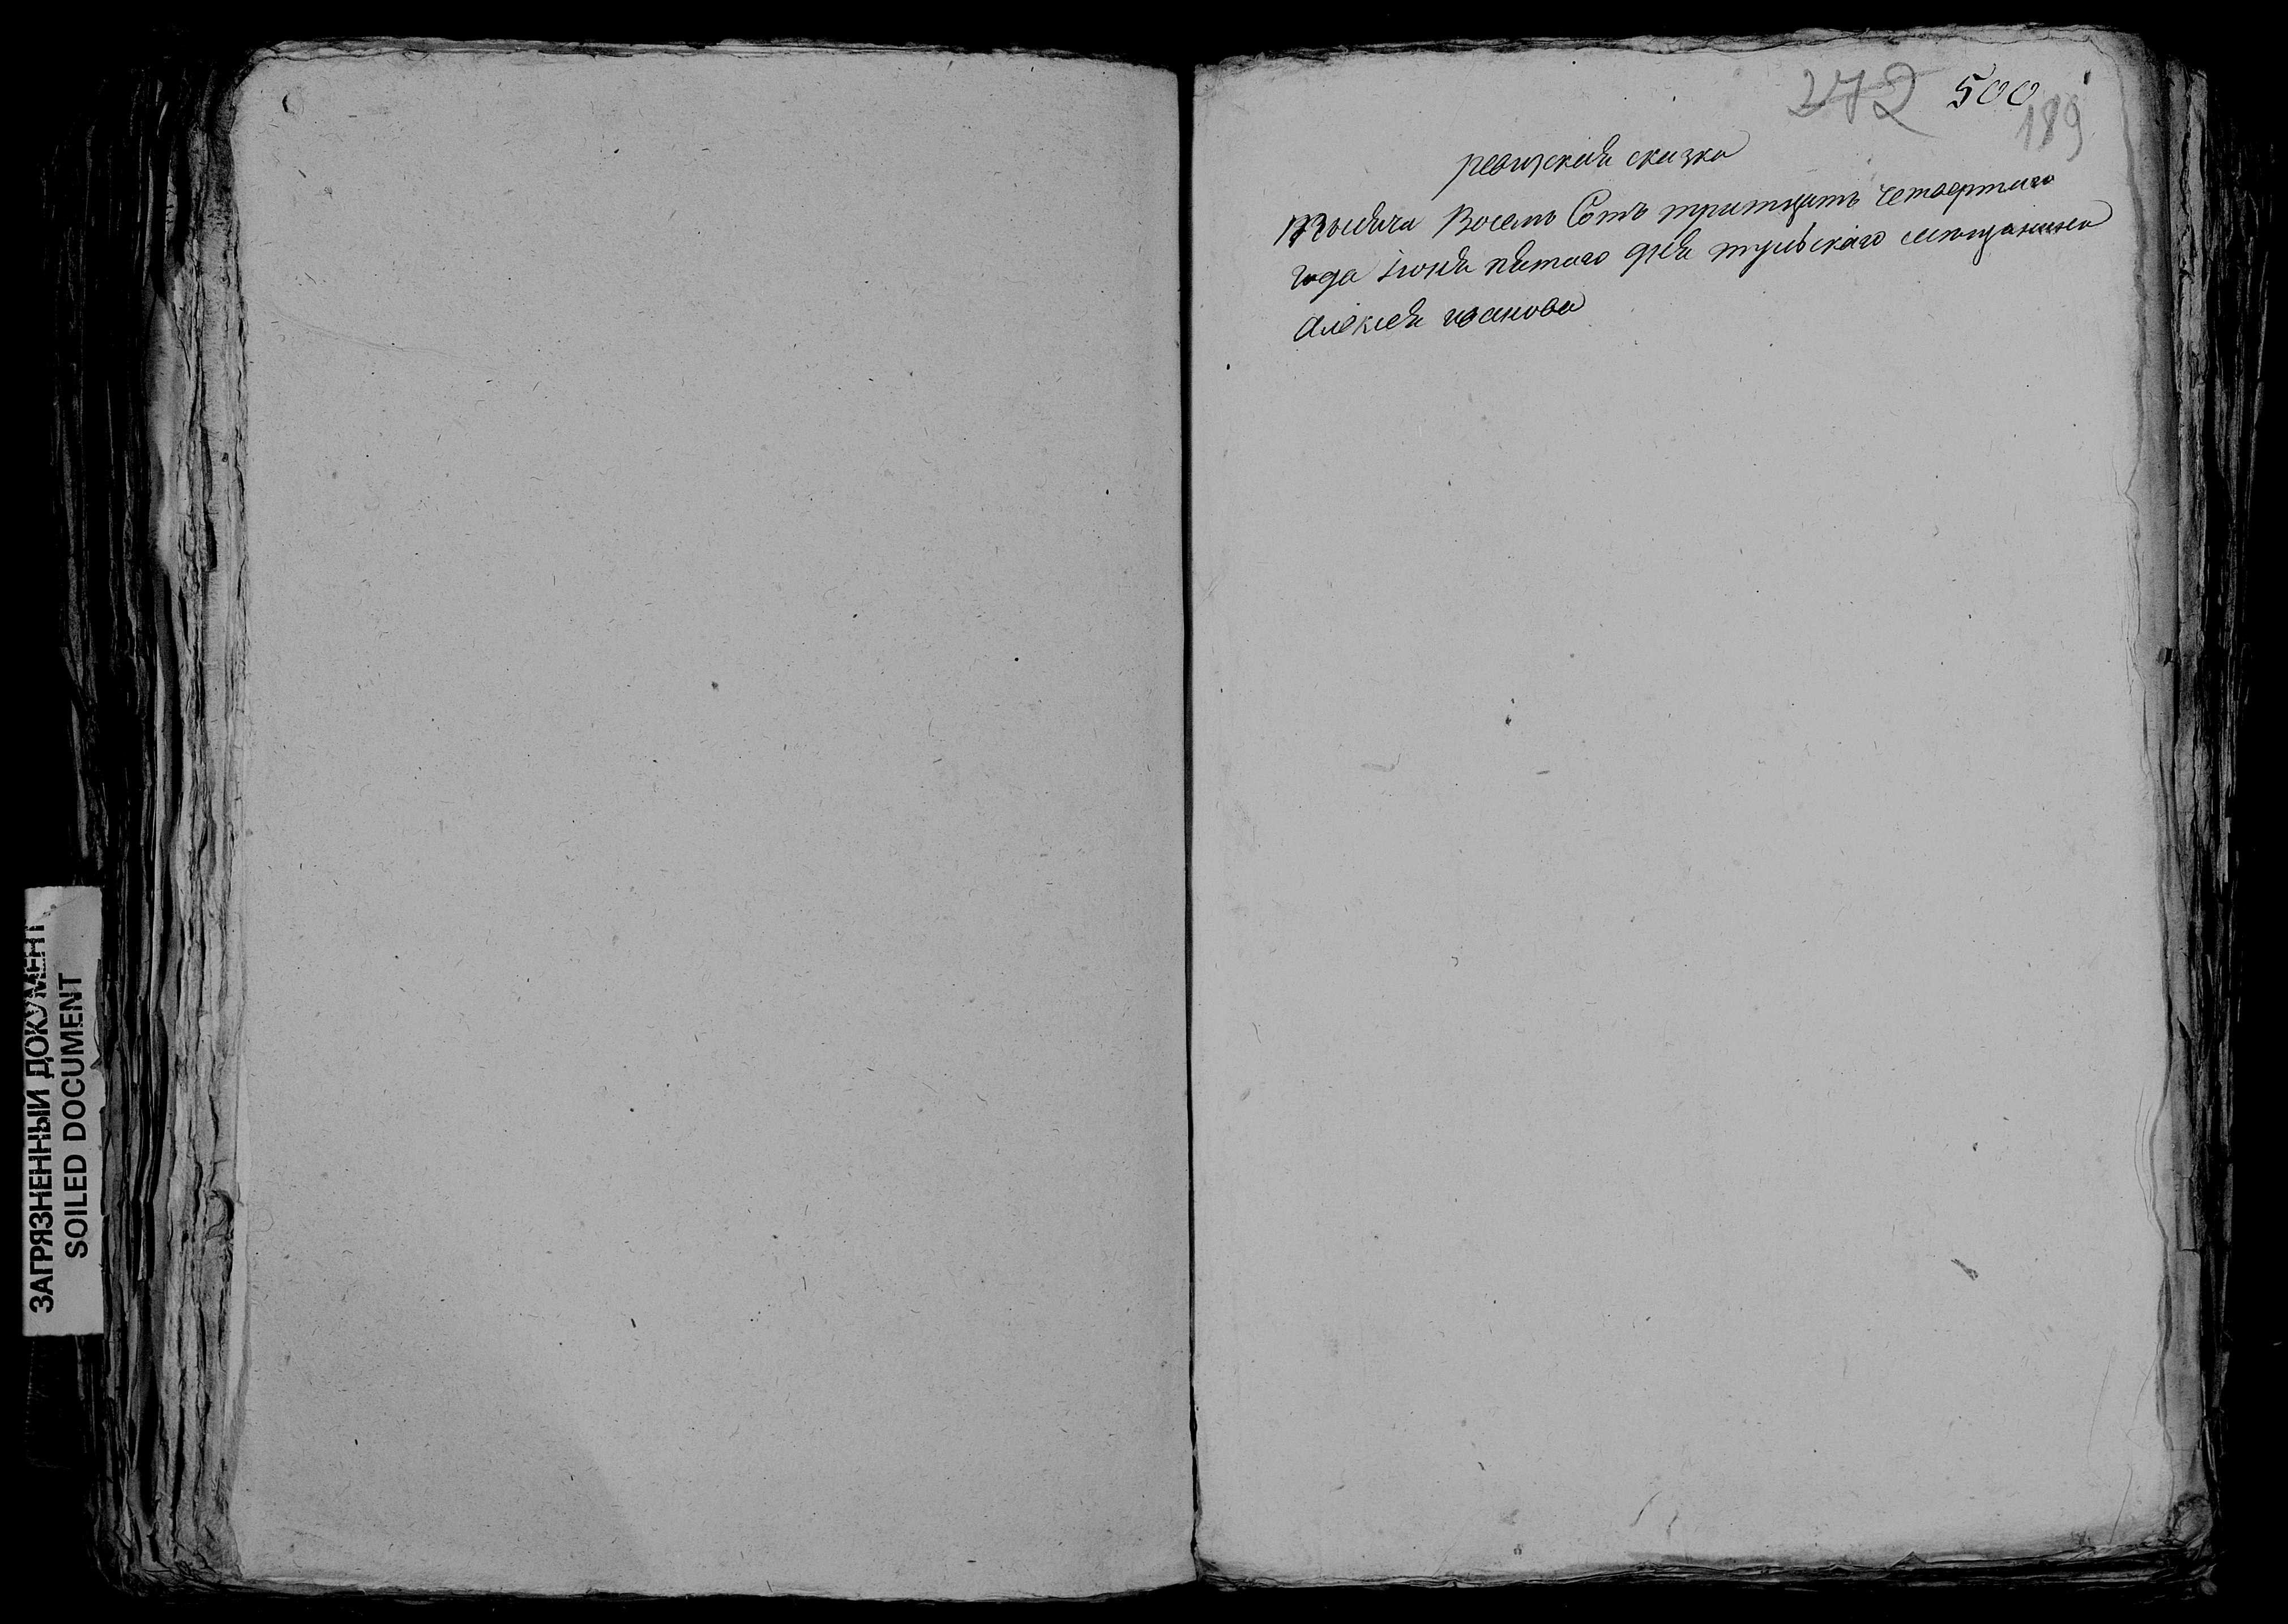 272 500
189
ревизская сказка
Тысяча Восемь Сотъ тритцать четвертаго
года Iюня пятаго дня тульскаго мещанина
Алексея иванова
ЗАГРЯЗНЕННЫЙ ДОКУМЕНТ
SOILED DOCUMENT